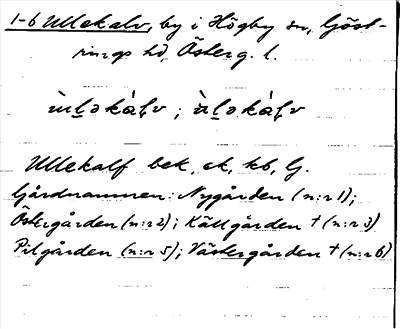 1-6 Ullekalv, by i Högby sn, Göst-
rings hd, Österg. l.
ùl̠əkàl̨v ; ùl̠əkàl̨v
Ullekalf bek, ek, kb, G.
Gårdnamnen: Nygården (n:r 1);
Östergården (n:r 2); Källgården † (n:r 3)
Pilgården (n:r 5); Västergården † (n:r 6)